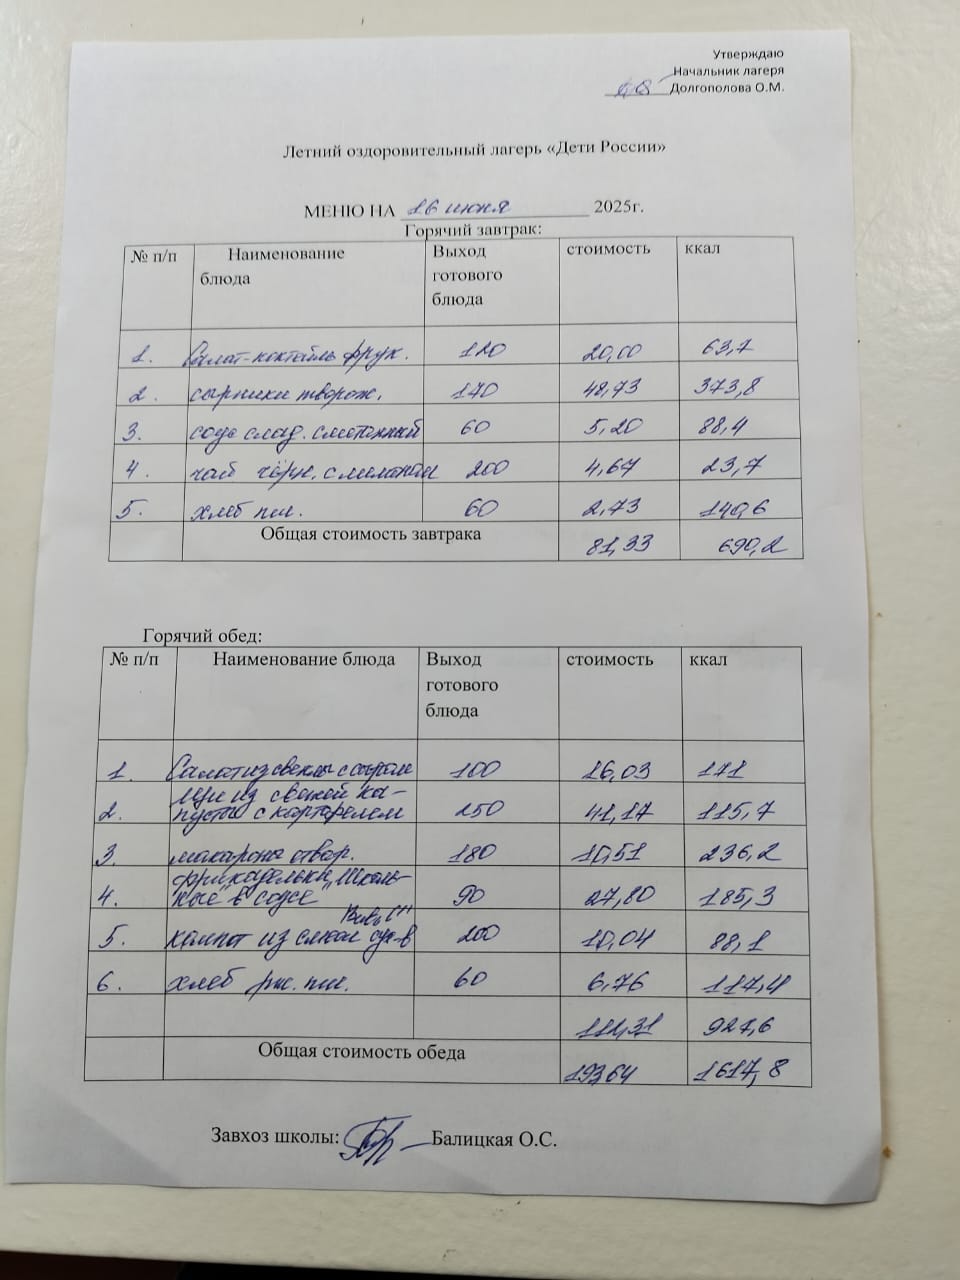 Утверждаю
Начальник лагеря
Долгополова О.М.
Летний оздоровительный лагерь «Дети России»
МЕНЮ НА 16 июня 2025г.
Горячий завтрак:
№ п/п Наименование блюда Выход готового блюда стоимость ккал
1. Салат-коктейль фрук. 120 20,00 63,7
2. сырники творож. 170 48,73 373,8
3. соус слад. сметанный 60 5,20 88,4
4. чай чёрн. с лимоном 200 4,67 23,7
5. хлеб пш. 60 2,73 140,6
Общая стоимость завтрака 81,33 690,2
Горячий обед:
№ п/п Наименование блюда Выход готового блюда стоимость ккал
1. Салат из свеклы с сыром 100 16,03 171
2. Щи из свежей ка-
пусты с картофелем 250 41,17 115,7
3. макароны отвор. 180 10,51 236,2
4. фрикадельки „Школь-
ные" в соусе 90 27,80 185,3
Вит „С"
5. компот из смеси сух-в 200 10,04 88,1
6. хлеб рж. пш. 60 6,76 117,4
112,31 927,6
Общая стоимость обеда 193,64 1617,8
Завхоз школы: Балицкая О.С.